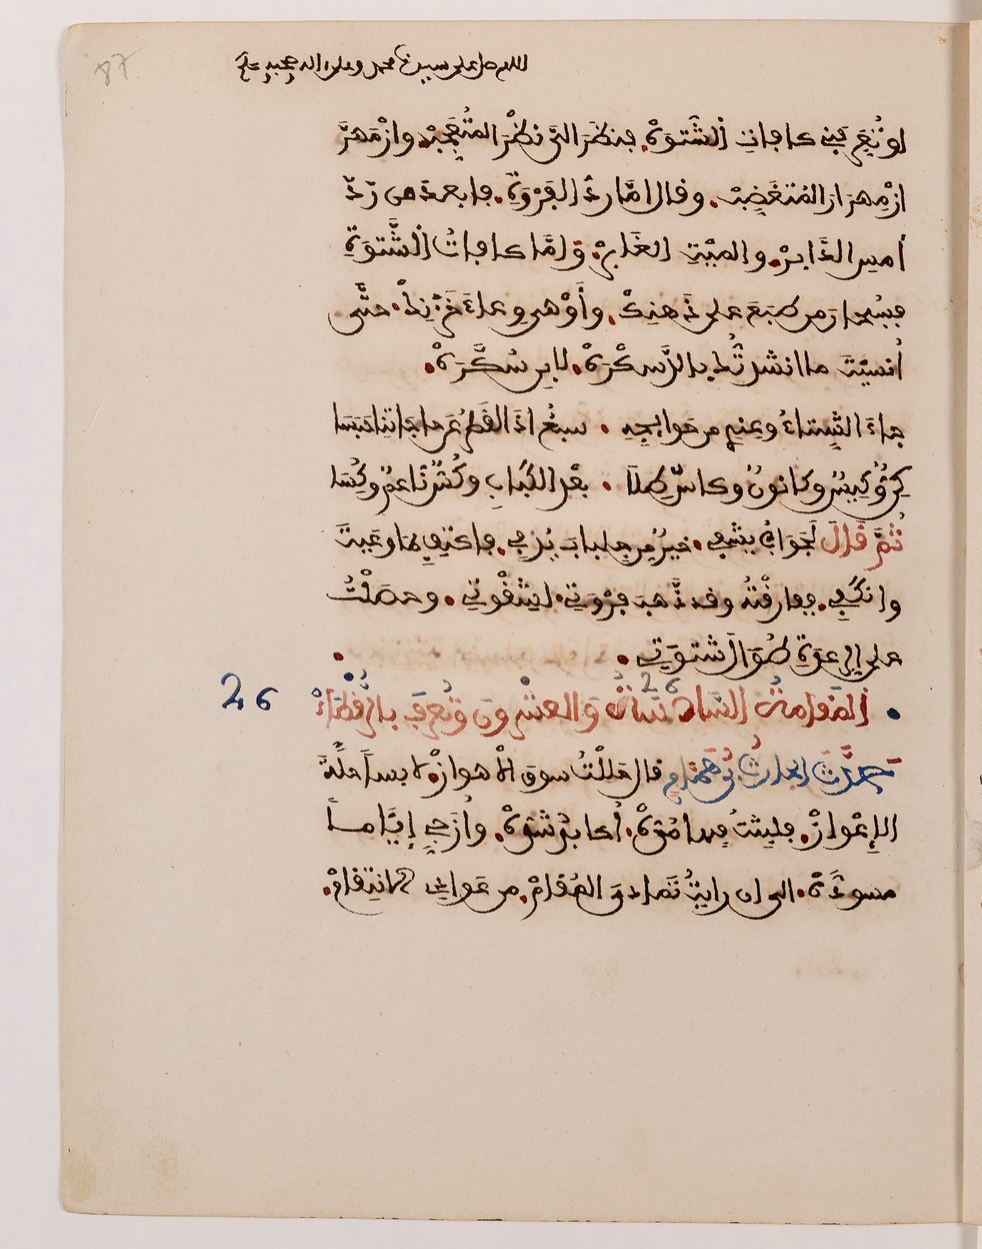 87
اللهم صل على سيدنا محمد وعلى اله وصحبه
او نُعِي عَينِي كافاتِ الشَّتوَةْ. فنظَرَ الَيَّ نظْرَ المتُعَجِّبْ. وازْمَهَرَّ
ازْمِهرارَ المتغَضِّبْ. وفال امَّا ردُّ الفَرْوَةِ. فابعدُ من رَدِّ
أمسِ الدَّابرْ. والميّتِ الغَابرْ. وَامَّا كافاتُ الشَّتوَةِ
فسُبحانَ من طبَعَ على ذهنِكْ. وأَوْهى وعاءَ خَزْنِكْ. حتَّى
أُنسيتَ ما انشدتُّك بالدَّسكَرَةْ. لابنِ سُكَّرَةْ.
جاءَ الشِّتاءُ وعِندِي من حَوايجِهِ . سبعُ اذَا القَطْرُ عَن حاجَاتِنا حَبَسَا
كِنٌّ وكِيسٌ وكانونٌ وكاسُ طِلًا . بعْد الكَبَابِ وكُسٌّ ناعمٌ وكِسَا
ثُمَّ قَالَ لَجَوَابٌ يشفِي. خيرٌ من جِلبابٍ يُدْفِي. فاكتفِ بما وعَيتَ
وانكَفِي. ففارقْتُه وقد ذَّهبَ فرْوَتِي. لشِقْوَتي. وحصَلْتُ
على الرِعدَةِ طُولَ شتوَتِي.
26 المَقامةُ السَّادسَةُ وَالعشْرُونَ وتُعرَفُ بالرَّقْطاءْ
26
حدَّثَ الحارثُ بْنُ هَمَّامٍ قالَ حَللْتُ سوقَ الأهوازْ. لابسًا حلَّةَ
الاِعْوازْ. فلبِثتُ فيها مُدَّةْ. أُكابدُ شدَّةْ. وأُزَجِّي إيَّامـاً
مسودَّةْ. الى ان رايتُ تَمادىَ المُقامْ. من عَوادِي الانتِقامْ.